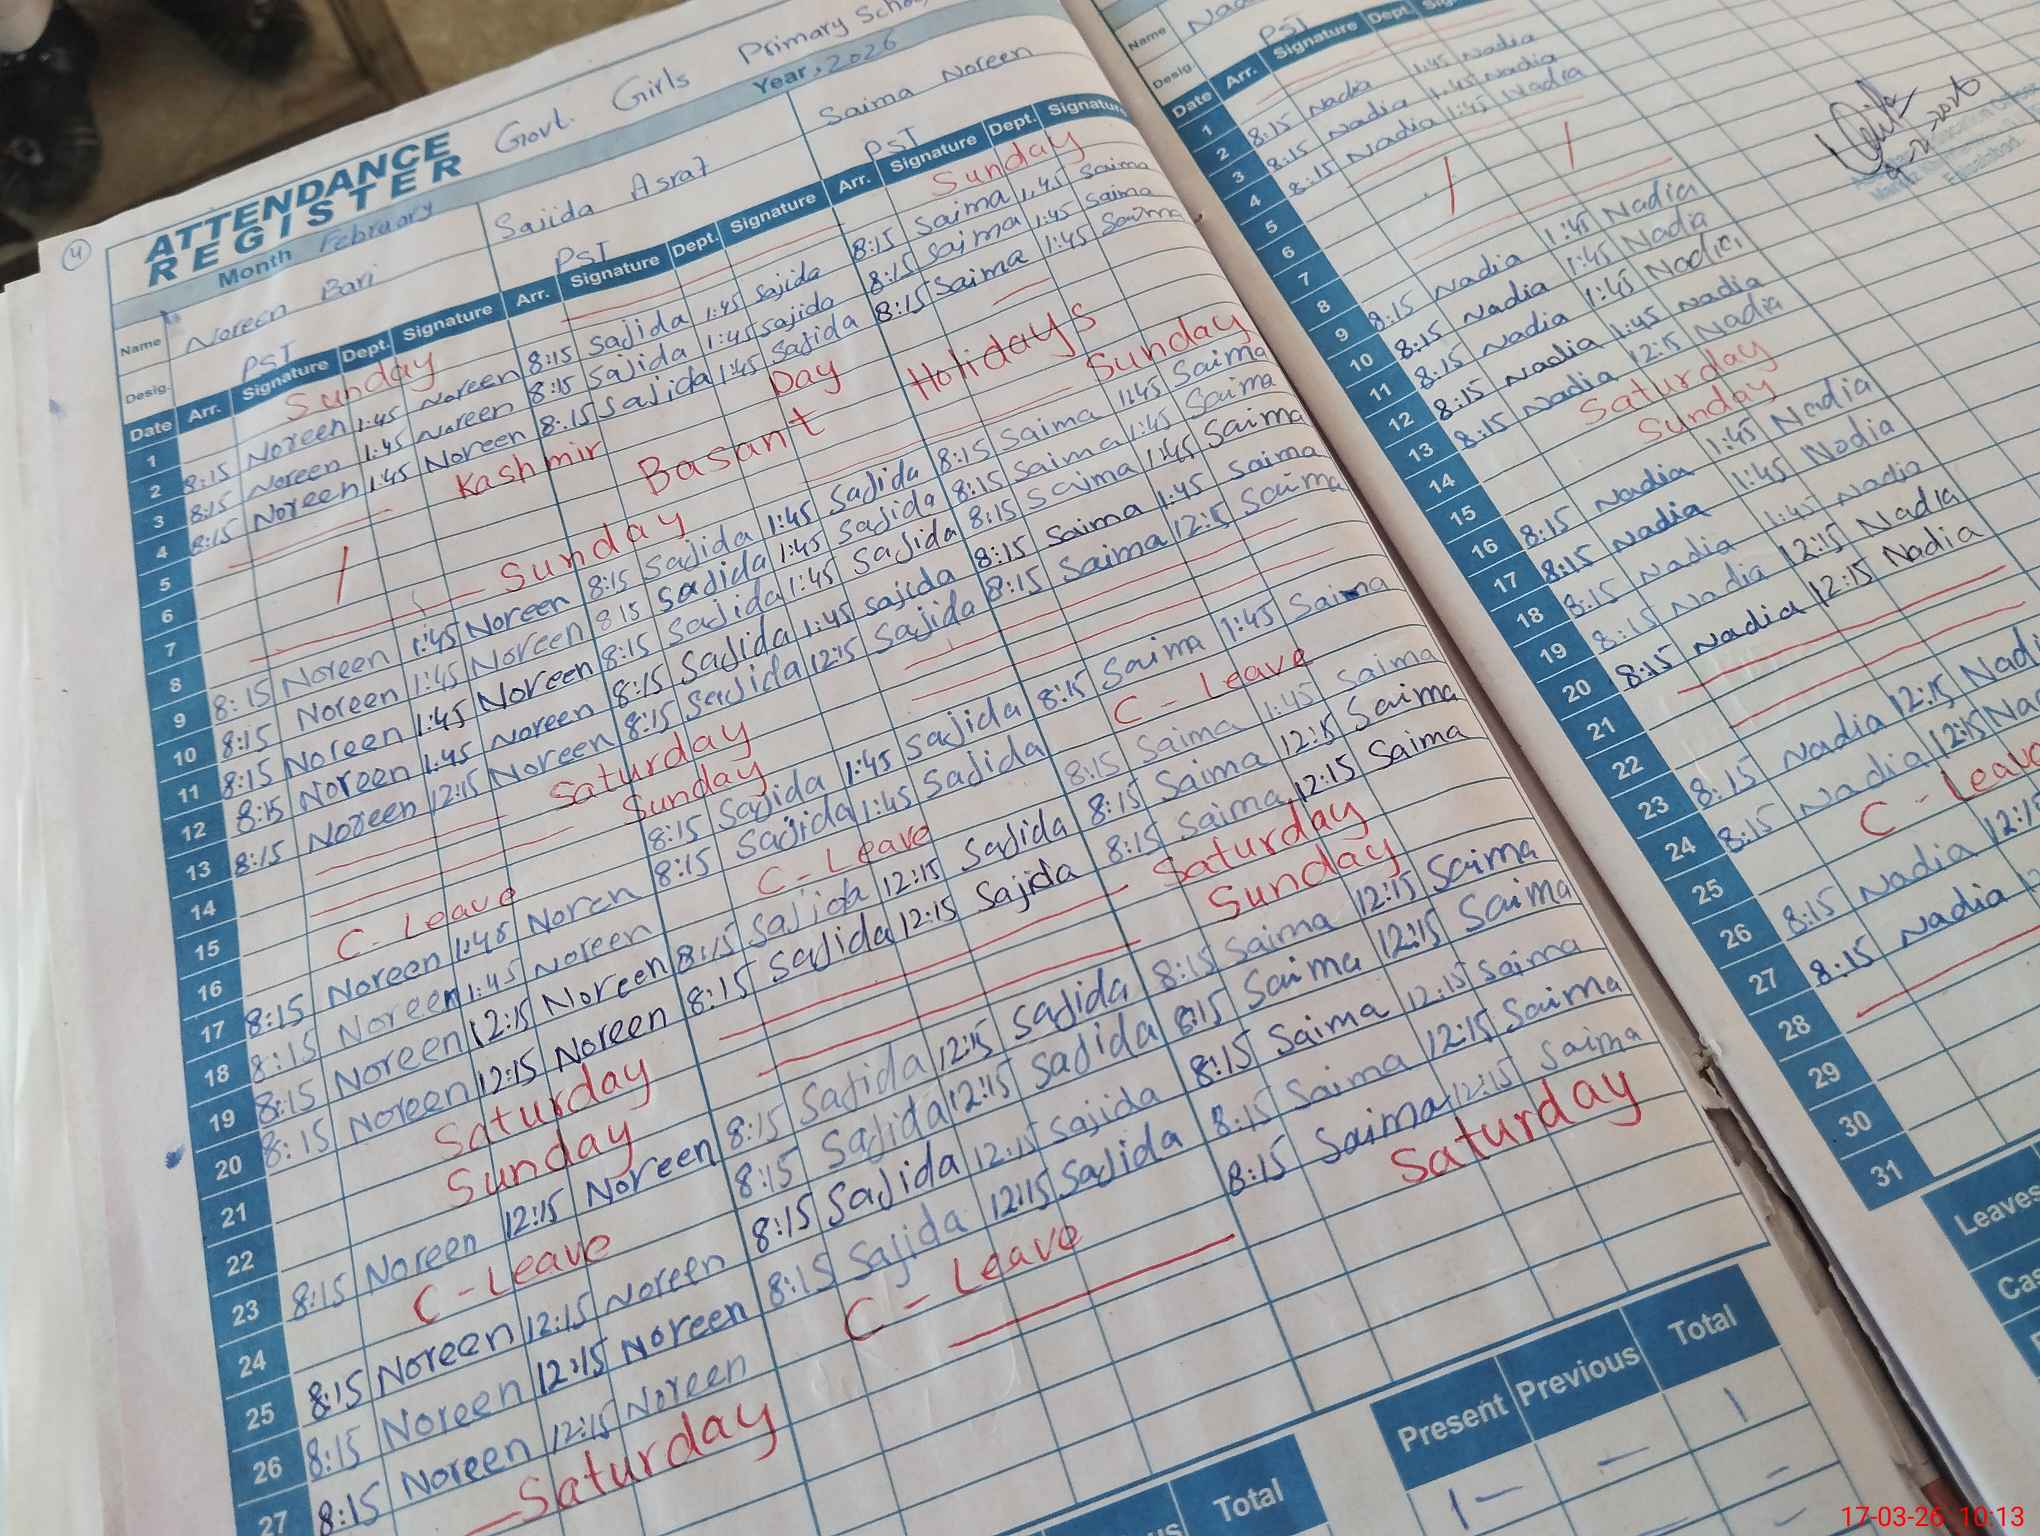 4
ATTENDANCE REGISTER
Govt. Girls Primary School
Month February Year, 2026
Name Noreen Bari Sajida Asraf Saima Noreen
Desig. PST PST PST
Date Arr. Signature Dept. Signature Arr. Signature Dept. Signature Arr. Signature Dept. Signature
1 Sunday Sunday
2 8:15 Noreen 1:45 Noreen 8:15 Sajida 1:45 Sajida 8:15 Saima 1:45 Saima
3 8:15 Noreen 1:45 Noreen 8:15 Sajida 1:45 Sajida 8:15 Saima 1:45 Saima
4 8:15 Noreen 1:45 Noreen 8:15 Sajida 1:45 Sajida 8:15 Saima 1:45 Saima
5 Kashmir Day
6 Basant Holidays
7
8 Sunday Sunday
9 8:15 Noreen 1:45 Noreen 8:15 Sajida 1:45 Sajida 8:15 Saima 1:45 Saima
10 8:15 Noreen 1:45 Noreen 8:15 Sajida 1:45 Sajida 8:15 Saima 1:45 Saima
11 8:15 Noreen 1:45 Noreen 8:15 Sajida 1:45 Sajida 8:15 Saima 1:45 Saima
12 8:15 Noreen 1:45 Noreen 8:15 Sajida 1:45 Sajida 8:15 Saima 1:45 Saima
13 8:15 Noreen 12:15 Noreen 8:15 Sajida 12:15 Sajida 8:15 Saima 12:15 Saima
14 Saturday
15 Sunday
16 C - Leave 8:15 Sajida 1:45 Sajida 8:15 Saima 1:45 Saima
17 8:15 Noreen 1:45 Noren 8:15 Sajida 1:45 Sajida C - Leave
18 8:15 Noreen 1:45 Noreen C - Leave 8:15 Saima 1:45 Saima
19 8:15 Noreen 12:15 Noreen 8:15 Sajida 12:15 Sajida 8:15 Saima 12:15 Saima
20 8:15 Noreen 12:15 Noreen 8:15 Sajida 12:15 Sajida 8:15 Saima 12:15 Saima
21 Saturday Saturday
22 Sunday Sunday
23 8:15 Noreen 12:15 Noreen 8:15 Sajida 12:15 Sajida 8:15 Saima 12:15 Saima
24 C - Leave 8:15 Sajida 12:15 Sajida 8:15 Saima 12:15 Saima
25 8:15 Noreen 12:15 Noreen 8:15 Sajida 12:15 Sajida 8:15 Saima 12:15 Saima
26 8:15 Noreen 12:15 Noreen 8:15 Sajida 12:15 Sajida 8:15 Saima 12:15 Saima
27 8:15 Noreen 12:15 Noreen C - Leave 8:15 Saima 12:15 Saima
Saturday Saturday
Total
Present Previous Total
1 - - 1
Name
Desig. PST
Date Arr. Signature Dept. Signature
1
2 8:15 Nadia 1:45 Nadia
3 8:15 Nadia 1:45 Nadia
4 8:15 Nadia 1:45 Nadia
5
6
7
8
9 8:15 Nadia 1:45 Nadia
10 8:15 Nadia 1:45 Nadia
11 8:15 Nadia 1:45 Nadia
12 8:15 Nadia 1:45 Nadia
13 8:15 Nadia 12:15 Nadia
14 Saturday
15 Sunday
16 8:15 Nadia 1:45 Nadia
17 8:15 Nadia 1:45 Nadia
18 8:15 Nadia 1:45 Nadia
19 8:15 Nadia 12:15 Nadia
20 8:15 Nadia 12:15 Nadia
21
22
23 8:15 Nadia 12:15 Nadi
24 8:15 Nadia 12:15 Na
25 C - Leave
26 8:15 Nadia 12:15
27 8:15 Nadia
28
29
30
31
Leaves
17-03-26 10:13